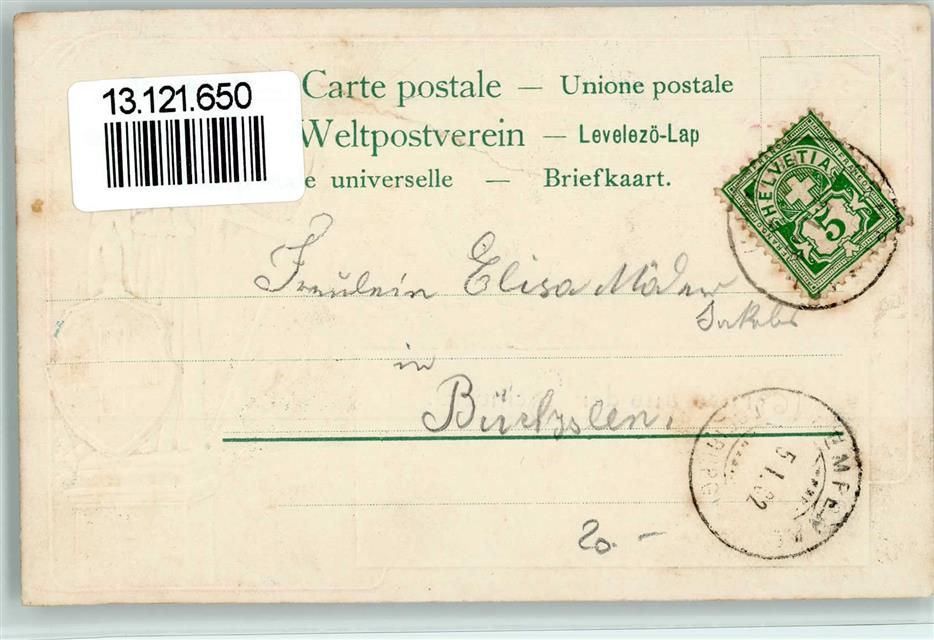 13.121.650
Carte postale — Unione postale
Weltpostverein — Levelezö-Lap
e universelle — Briefkaart.
HELVETIA
FRANCO
5
Fräulein Elisa Mäder
Jakobs
in
5.I.02
20.-